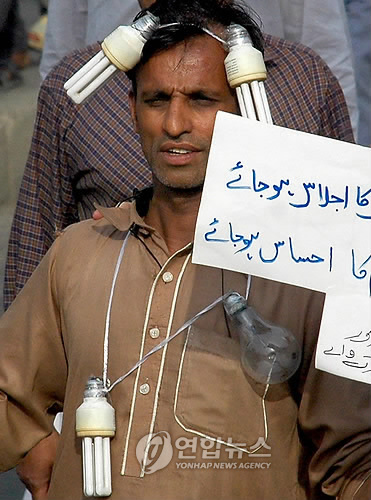 کا اجلاس ہوجائے
کا احساس ہوجائے
پور
والے
연합뉴스
YONHAP NEWS AGENCY